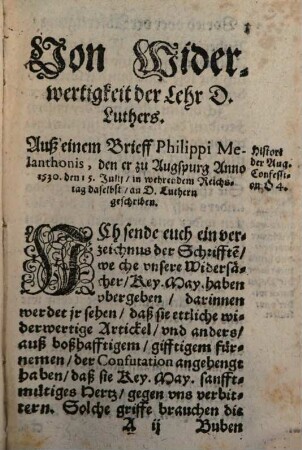 Von Wider-
wertigkeit der Lehr D.
Luthers.
Auß einem Brieff Philippi Me-
lanthonis, den er zu Augspurg Anno
1530. den 15. Julij / in wehrendem Reichs-
tag daselbst / an D. Luthern
geschriben.
Histori
der Aug.
Confessi-
on Q 4.
ICh sende euch ein ver-
zeichnus der Schrifftē /
we che vnsere Widersä-
cher / Key. May. haben
vbergeben / darinnen
werdet jr sehen / daß sie ettliche wi-
derwertige Artickel / vnd anders /
auß boßhafftigem / gifftigem für-
nemen / der Confutation angehengt
haben / daß sie Key. May. sanfft-
mütiges Hertz / gegen vns verbit-
tern. Solche griffe brauchen die
A ij Buben